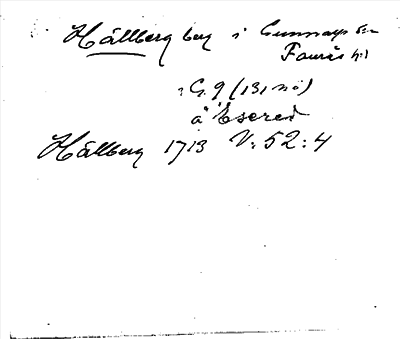 Hällberg berg i Gunnarps sn
Faurås hd
: G. 9 (131 nö)
å Esered
Hällberg 1713 V: 52: 4